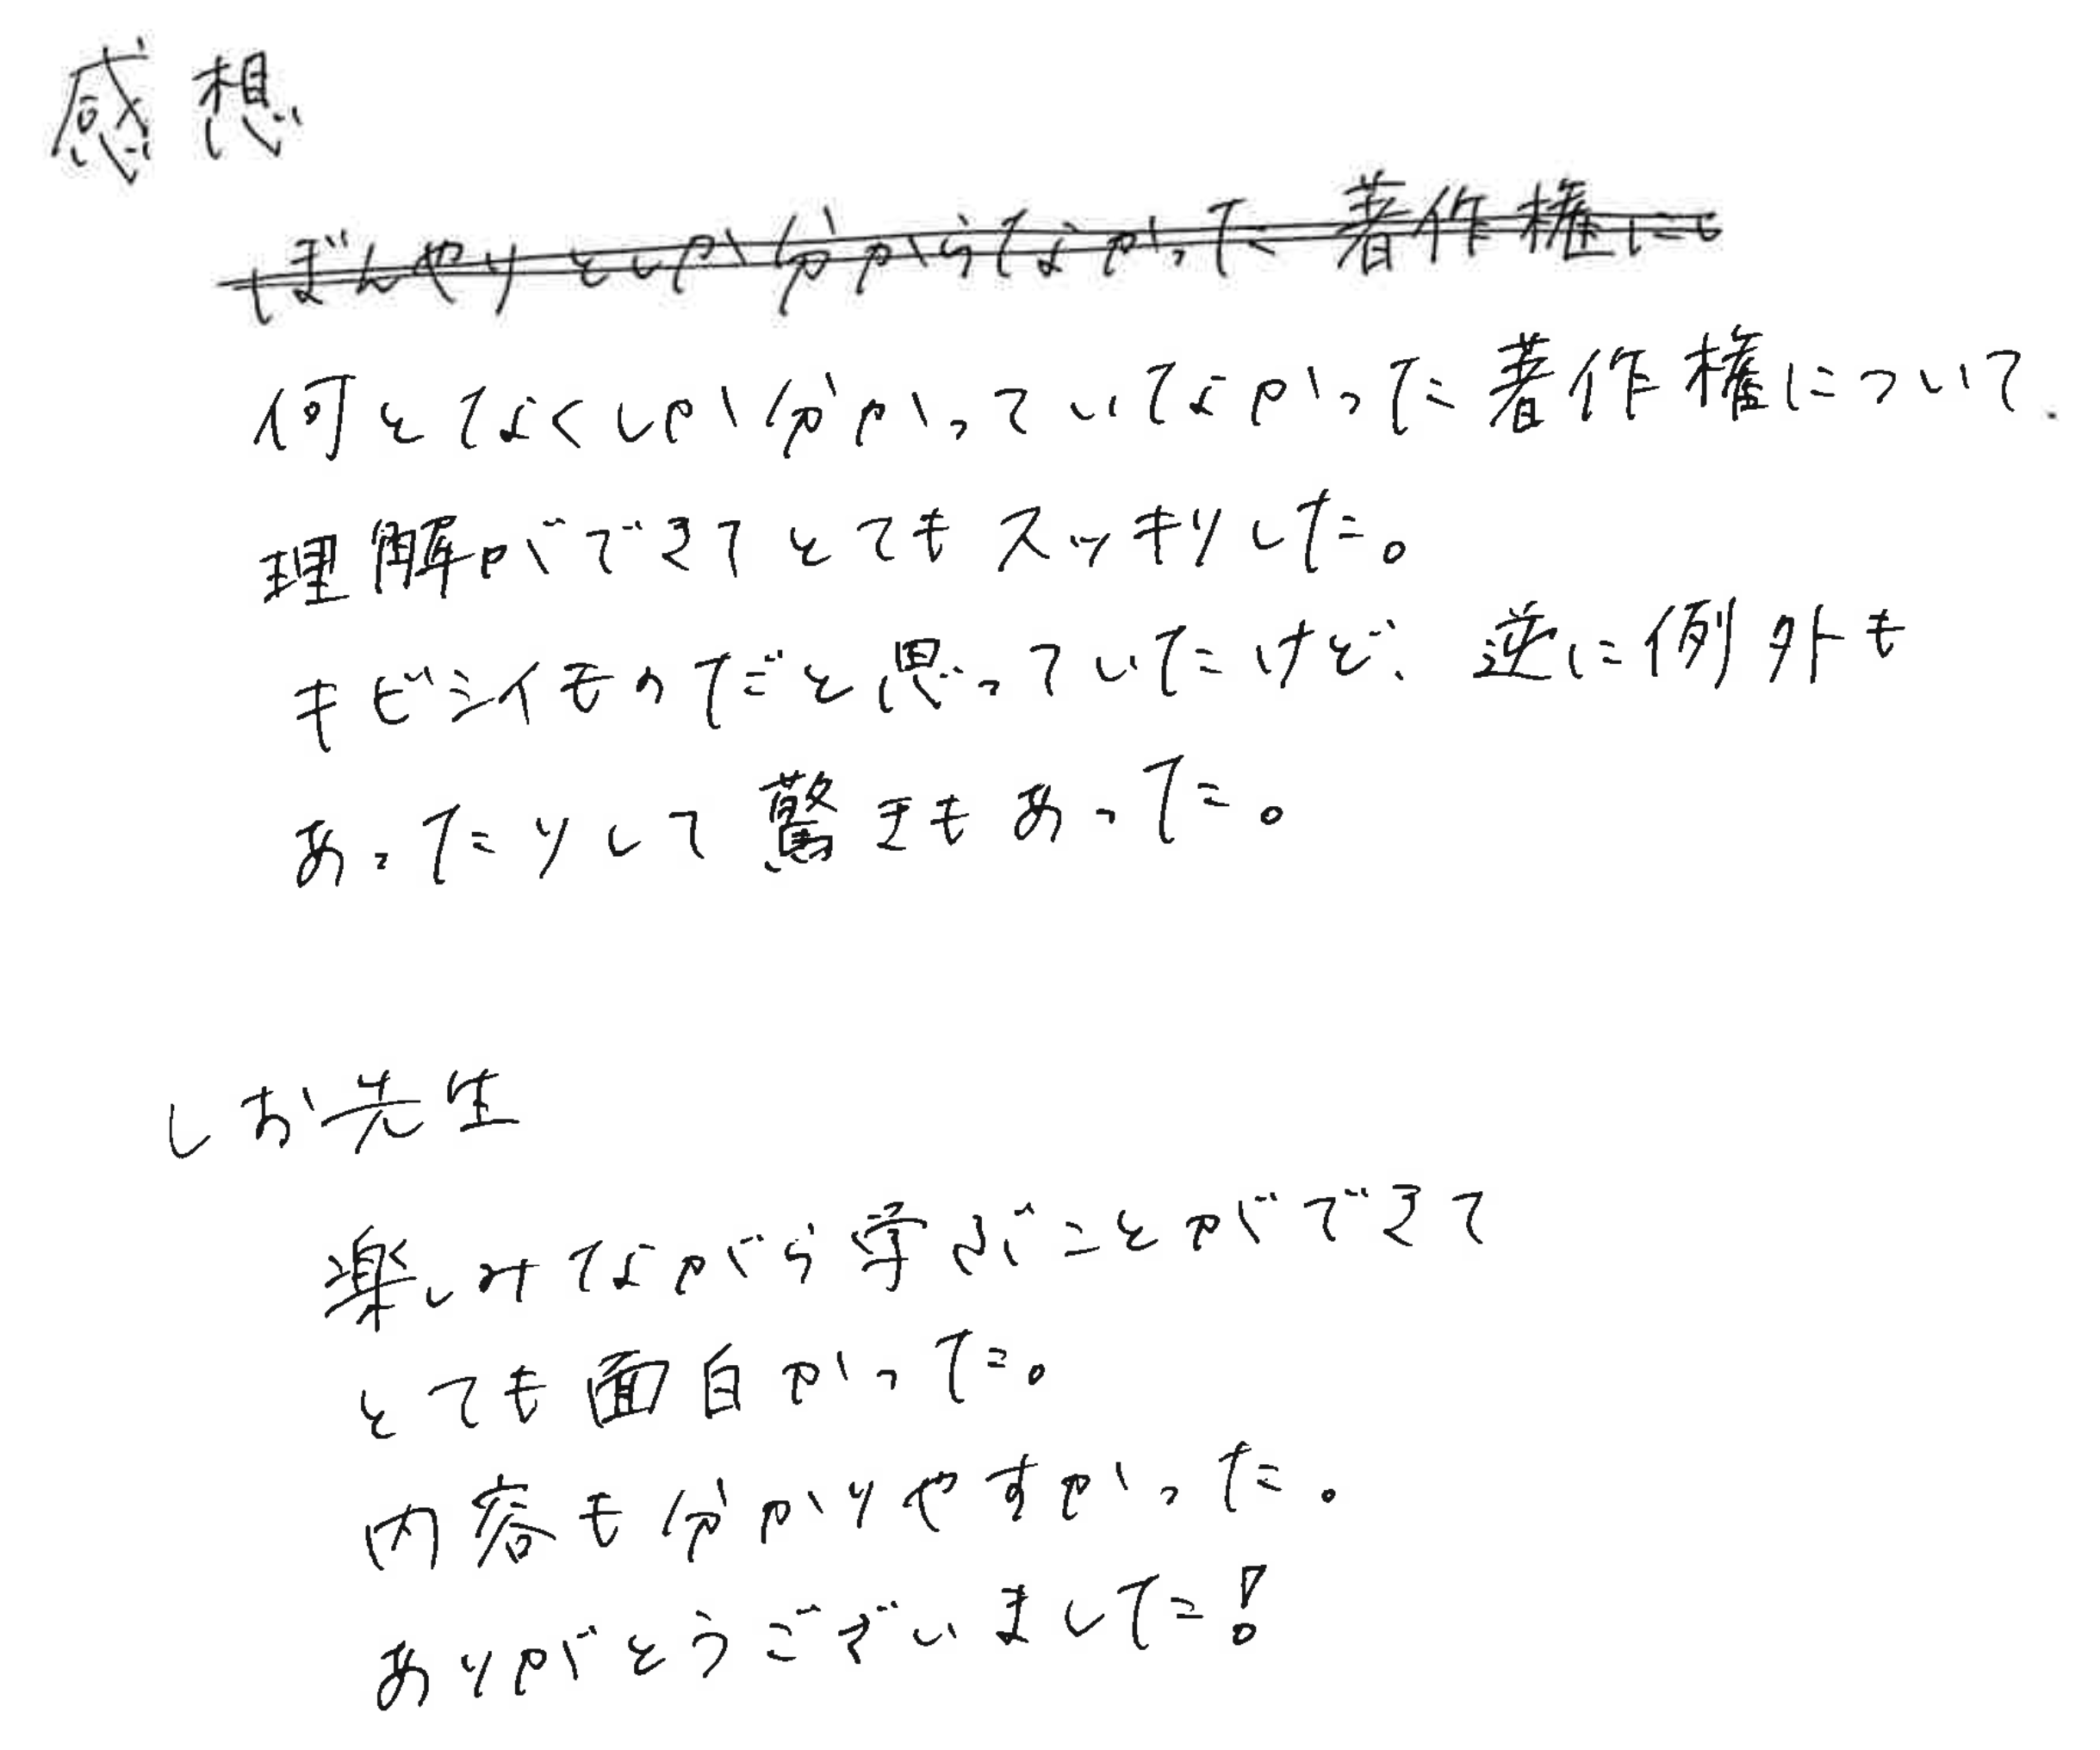 感想
ぼんやりとしか分からなかった著作権にも
何となくしか分かっていなかった著作権について、
理解ができてとてもスッキリした。
キビシイものだと思っていたけど、逆に例外も
あったりして驚きもあった。
しお先生
楽しみながら学ぶことができて
とても面白かった。
内容も分かりやすかった。
ありがとうございました!